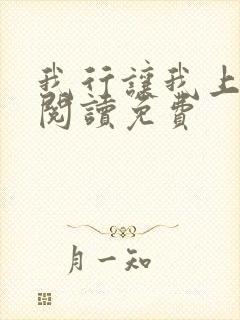 我行讓我上
閱讀免費
月一知